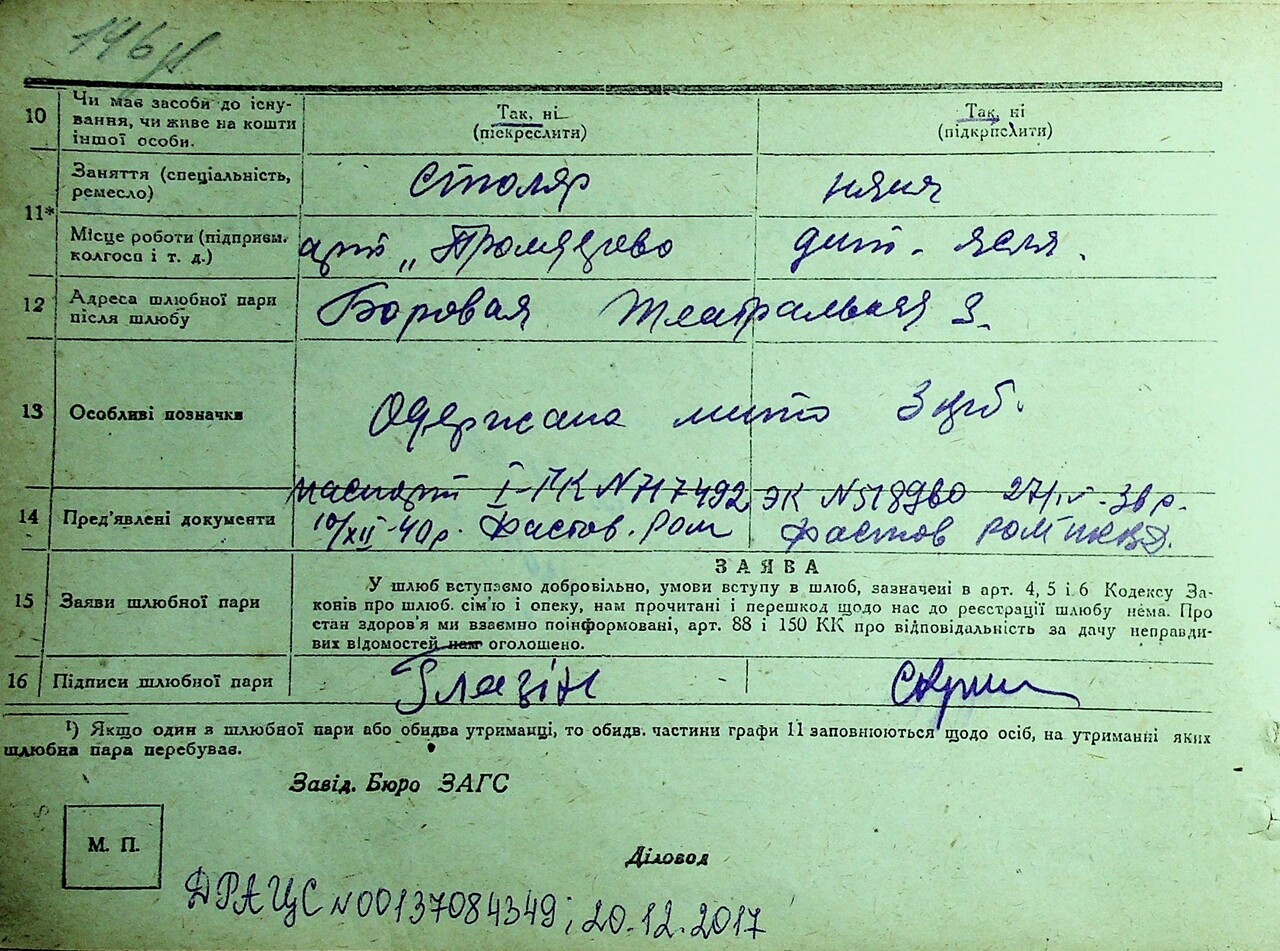 146
10 Чи має засоби до існу-
вання, чи живе на кошти
іншої особи.
Так, ні
(піскреслити)
Так, ні
(підкрпслити)
11*
Заняття (спеціальність,
ремесло)
Столяр няня
Місце роботи (підприєм.
колгосп і т. д.)
арт „ дит. ясля.
12 Адреса шлюбної пари
після шлюбу
Боровая Театральная 3.
13 Особливі позначки
Одержана мито 3 крб.
14 Пред'явлені документи
паспорт І-ГК N 717492 ЭК N 518960
10/XII-40р. Фастов. Ром Фастов РОМ НКВД.
15 Заяви шлюбної пари
ЗАЯВА
У шлюб вступаємо добровільно, умови вступу в шлюб, зазначені в арт. 4, 5 і 6 Кодексу За-
конів про шлюб. сім'ю і опеку, нам прочитані і перешкод щодо нас до реєстрації шлюбу нема. Про
стан здоров'я ми взаємно поінформовані, арт. 88 і 150 КК про відповідальність за дачу неправди-
вих відомостей нам оголошено.
16 Підписи шлюбної пари
Глазін
¹) Якщо один з шлюбної пари або обидва утриманці, то обидв. частини графи 11 заповнюються щодо осіб, на утриманні яких
шлюбна пара перебуває.
Завід. Бюро ЗАГС
М. П.
Діловод
ДРАЦС N00137084349; 20.12.2017